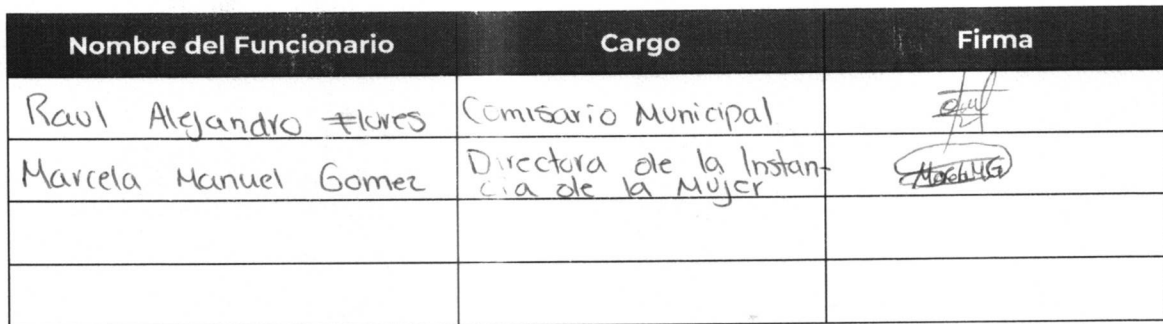 Nombre del Funcionario Cargo Firma
Raul Alejandro Flores Comisario Municipal
Marcela Manuel Gomez Directora de la Instan-
cia de la Mujer